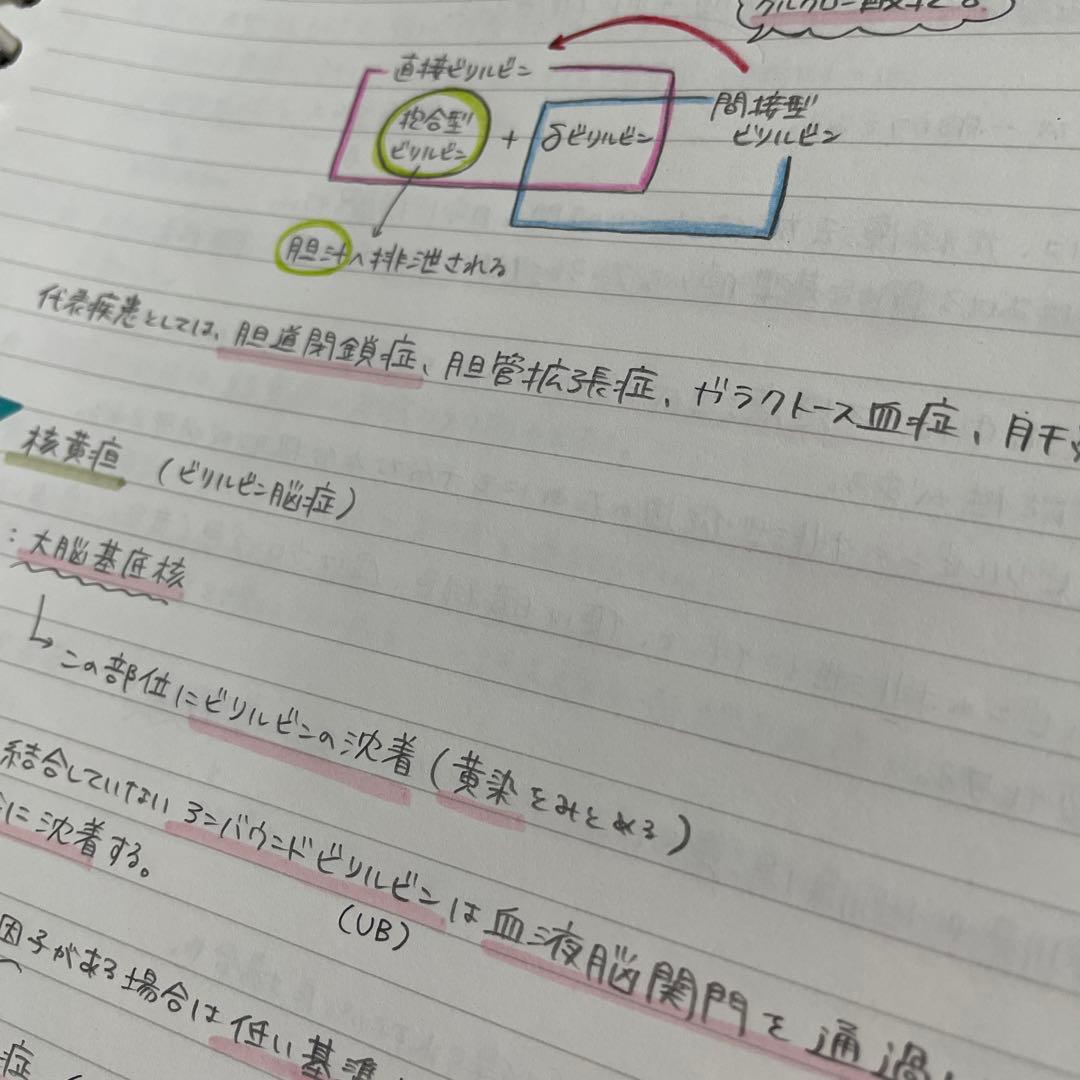 直接ビリルビン
抱合型
ビリルビン
+
δビリルビン
間接型
ビリルビン
胆汁へ排泄される
代表疾患としては、胆道閉鎖症、胆管拡張症、ガラクトース血症、肝
核黄疸 (ビリルビン脳症)
:大脳基底核
↳この部位にビリルビンの沈着(黄染をみとめる)
結合していないアンバウンドビリルビンは血液脳関門を通過
(UB)
に沈着する。
因子がある場合は低い基準
症